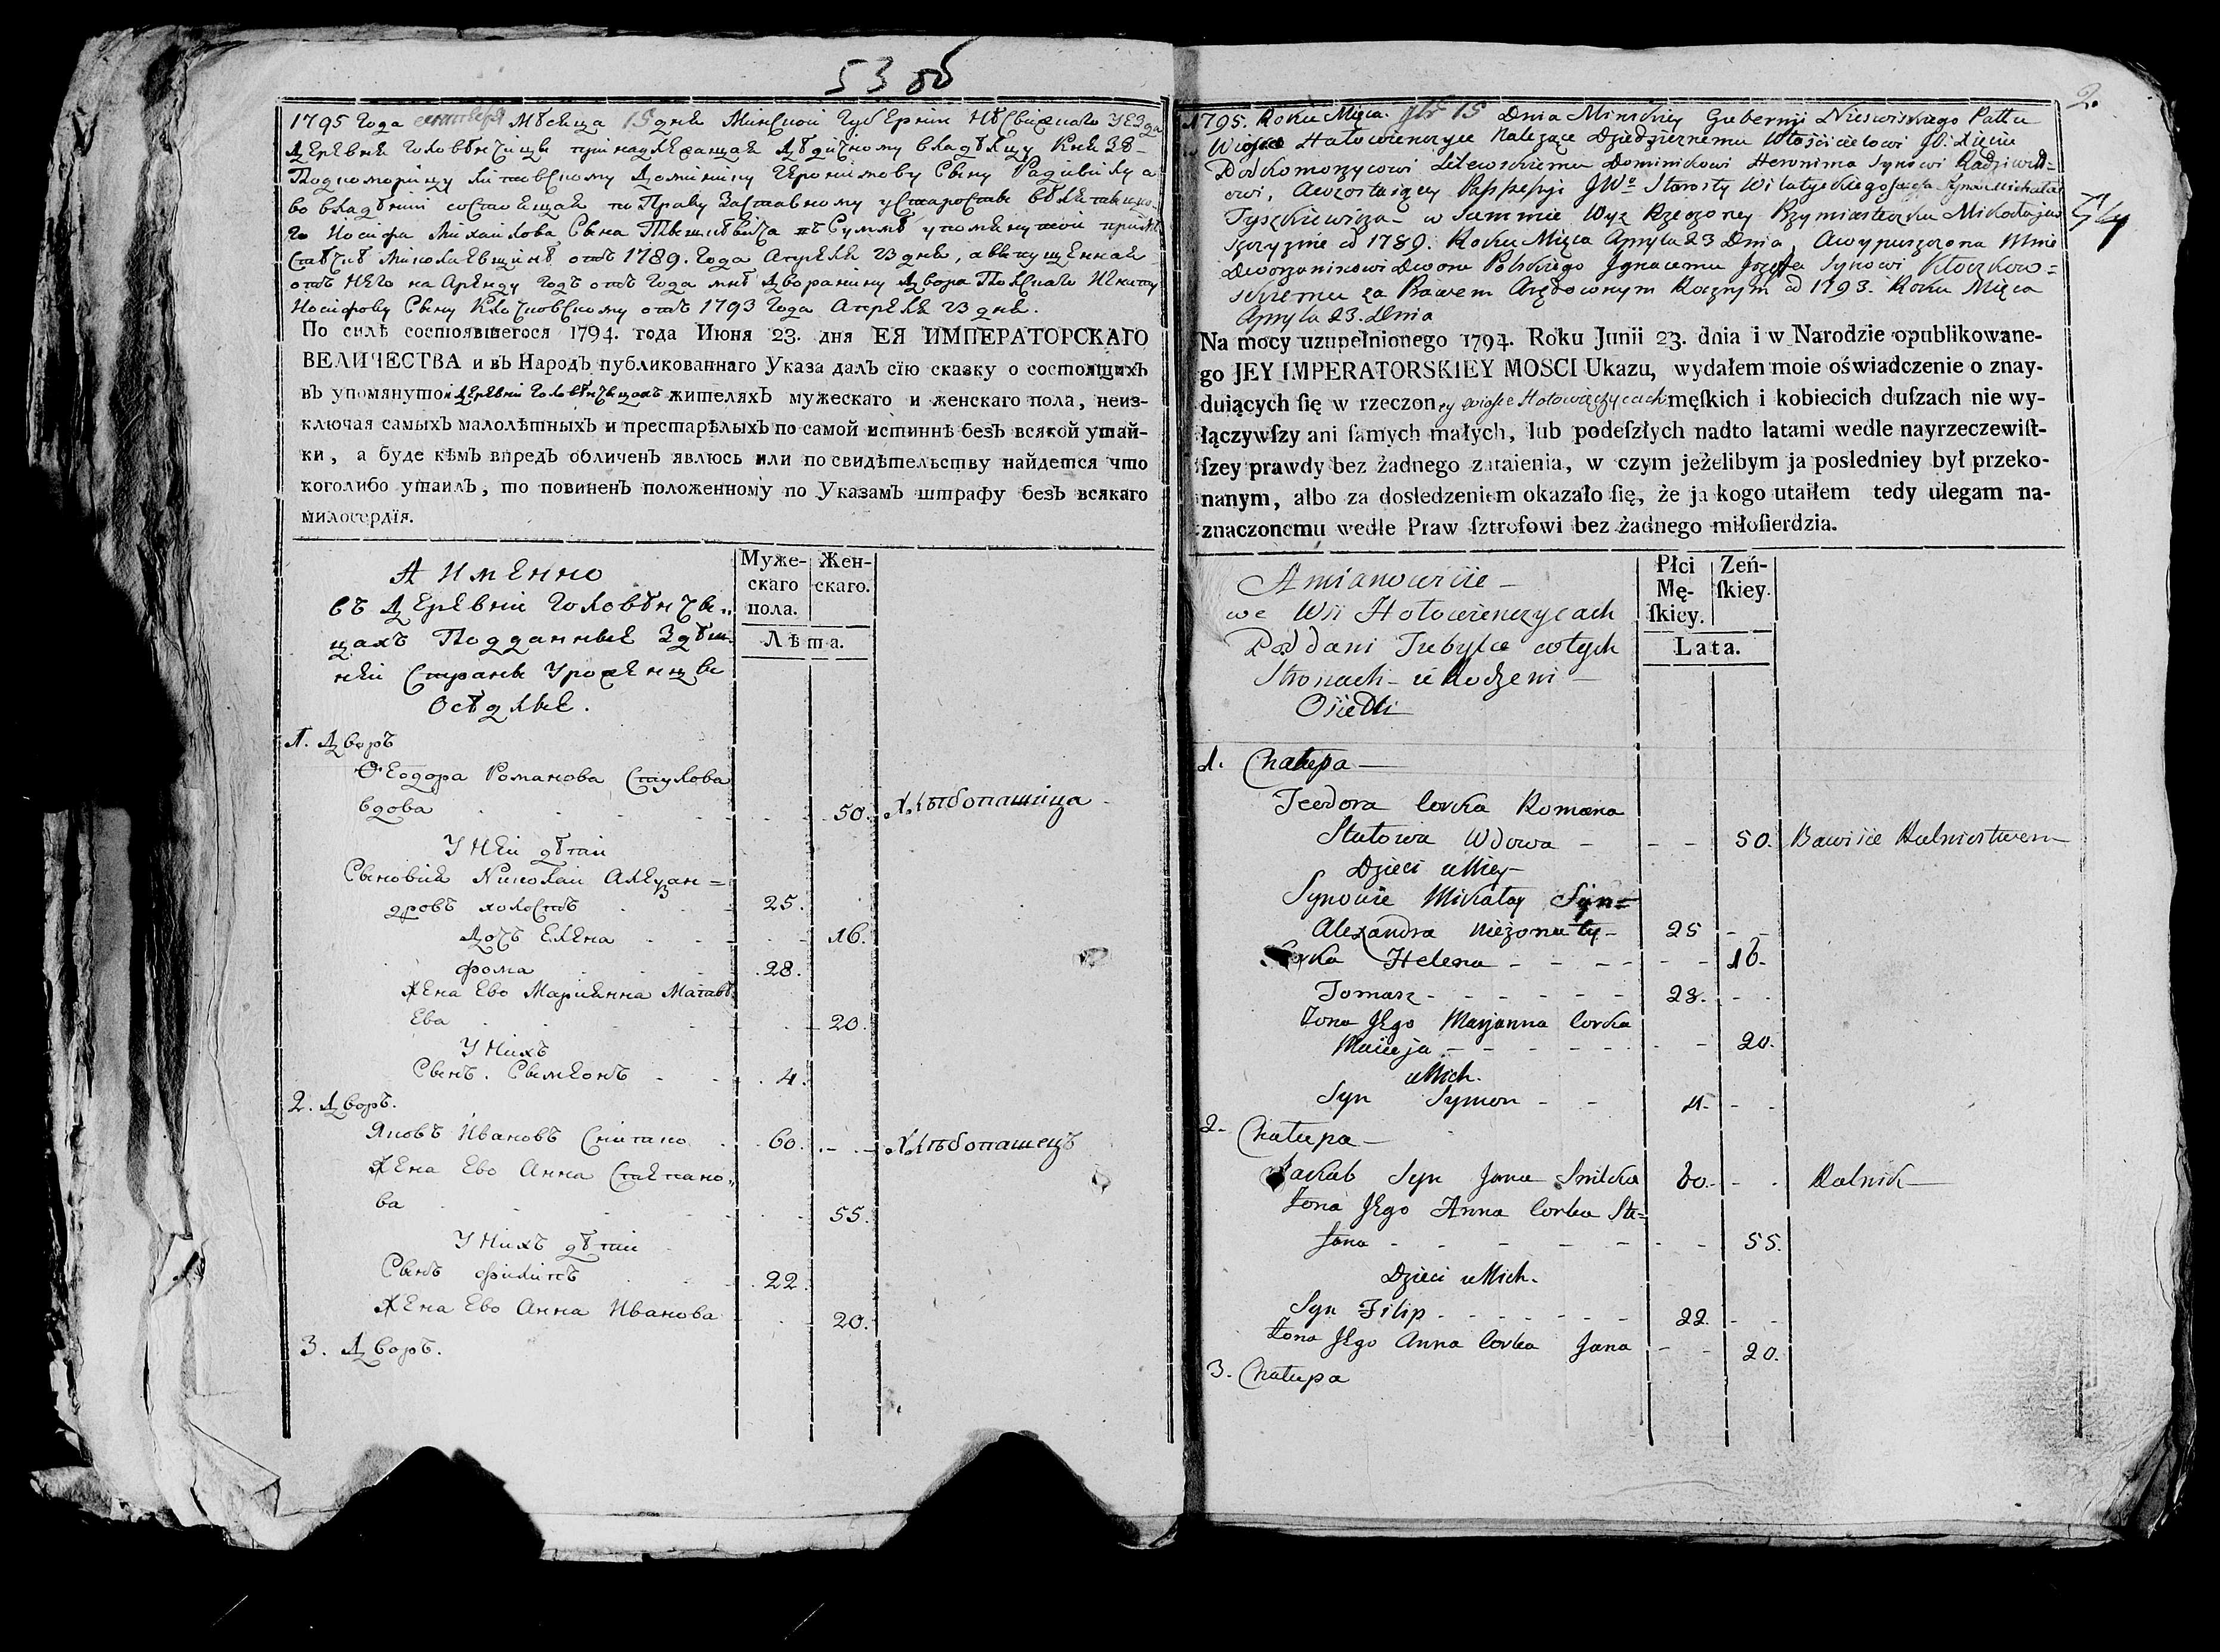 53 об
1795 года сентября мѣсяца 15 дня Минской Губерніи Несвижскаго уезда
деревня Головѣнчицы принадлежащая дѣдичному владѣлцу Князю
Подкоморицу литовскому Доминику Иеронимову Сыну Радивилу а
во владѣніи состоящая по Праву Заставному у Старосты
го Иосифа Михайлова Сына Тышкевича въ Суммѣ упомянутой при мѣ
стѣчкѣ Миколаевщинѣ отъ 1789. года Апреля 23 дня, а выпущенная
отъ Него на Аренду годъ отъ года мнѣ дворянину двора Полскаго Игнату
Иосифову Сыну Клочковскому отъ 1793 года Апреля 23 дня.
По силѣ состоявшегося 1794. года Июня 23. дня ЕЯ ИМПЕРАТОРСКАГО
ВЕЛИЧЕСТВА и въ Народъ публикованнаго Указа далъ сїю сказку о состоящихъ
въ упомянутои деревни Головѣнчицахъ жителяхъ мужескаго и женскаго пола, неиз-
ключая самыхъ малолѣтныхъ и престарѣлыхъ по самой истиннѣ безъ всякой утай-
ки, а буде кѣмъ впредъ обличенъ явлюсь или по свидѣтельству найдется что
коголибо утаилъ, то повиненъ положенному по Указамъ штрафу безъ всякаго
милосердїя.
А имѣнно
въ деревни Головѣнчи„
цахъ Подданные Здѣш-
неи Страны Уроженцы
Осѣдлые.
Муже-
скаго
пола.
Жен-
скаго.
Лѣта.
1. Дворъ
Ѳеодора Романова Стулова
вдова 50. Хлѣбопашица
У Неи дѣтаи
Сыновия Николаи Алеѯан=
дровъ холостъ 25.
Дочъ Елена 16.
фома 28.
Жена Ево Марианна Матвѣ
ева 20.
У Нихъ
Сынъ. Сымеонъ 4.
2. Дворъ.
Яковъ Ивановъ Снитко 60. Хлѣбопашецъ
Жена Ево Анна Степано„
ва 55.
У Нихъ дѣтаи
Сынъ филипъ 22.
Жена Ево Анна Иванова 20.
3. Дворъ.
2.
1795. Roku Mięca. 15 Dnia Minskiey Gubernji Nieswiskiego Pattu
Wioska Hołowienczyce Nalezące Dziedzicznemu Włoscicielowi Xięciu
Podkomorzycowi Litewskiemu Dominikowi Heronima Synowi Radziwiłł=
owi, Awzostaiący Possessyi JWo Starosty Wilatyckiego Jozefa Syna Michała
Tyszkiewicza w Summie Wyz Rzeczoney Przymiasteczku Mikołajew
szczyznie od 1789. Roku Mięca Apryla 23 Dnia, Awypuszczona Mnie
Dworzaninowi Dworu Polskiego Jgnacemu Jozefa Synowi Kłoczkow=
skiemu za Prawem Arędownym Rocznym od 1793. Roku Mięca
Apryla 23. Dnia
Na mocy uzupełnionego 1794. Roku Junii 23. dnia i w Narodzie opublikowane-
go JEY IMPERATORSKIEY MOSCI Ukazu, wydałem moie oświadczenie o znay-
duiących ſię w rzeczoney wiosce Hołowięczycach męſkich i kobiecich duſzach nie wy-
łączywſzy ani ſamych małych, lub podeſzłych nadto latami wedle nayrzeczewiſt-
ſzey prawdy bez żadnego zataienia, w czym jeżelibym ja posledniey był przeko-
nanym, albo za dosledzeniem okazało się, że ja kogo utaiłem tedy ulegam na-
znaczonemu wedle Praw ſztrofowi bez żadnego miłoſierdzia.
Amianowicie
we Wsi Hołowienczycach
Poddani Tubylce wtych
Stronach urodzeni
Osiedli
Płci
Mę-
ſkiey.
Zeń-
ſkiey.
Lata.
1. Chałupa
Teodora Corka Romana
Stułowa Wdowa 50. Bawisie Rolnictwem
Dzieci uNiey
Synowie Mikołay Syn=
Alexandra nieżonaty 25
Corka Helena 16.
Tomasz 28.
Zona Jego Maryanna Corka
Macieja 20.
uNich.
Syn Symon 4.
2. Chałupa
Jakub Syn Jana Snitka 60. Rolnik
Zona Jego Anna Corka Ste=
fana 55.
Dzieci uNich.
Syn Filip 22.
Zona Jego Anna Corka Jana 20.
3. Chałupa